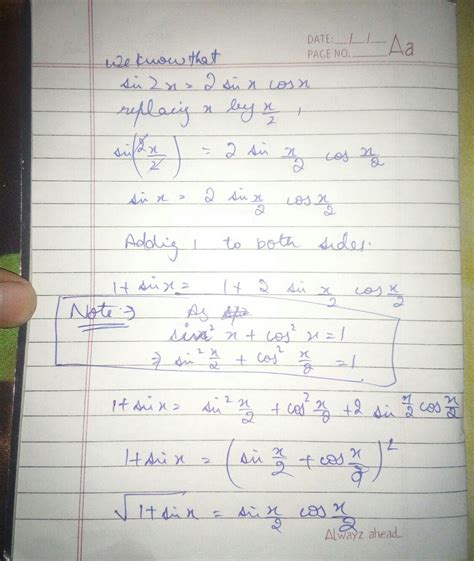 DATE: __/__/__
PAGE NO.____ Aa
we know that
sin 2x = 2 sin x cos x
replacing x by x/2,
sin(2x/2) = 2 sin x/2 cos x/2
sin x = 2 sin x/2 cos x/2
Addig 1 to both sides.
1 + sin x = 1 + 2 sin x/2 cos x/2
Note:→ As
sin² x + cos² x = 1
⇒ sin² x/2 + cos² x/2 = 1
1 + sin x = sin² x/2 + cos² x/2 + 2 sin x/2 cos x/2
1 + sin x = (sin x/2 + cos x/2)²
√1 + sin x = sin x/2 cos x/2
Alwayz ahead...